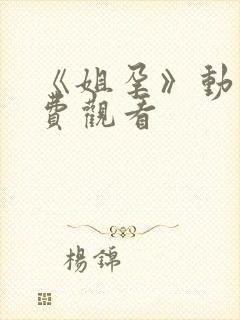 《姐孕》動
費觀看
楊錦